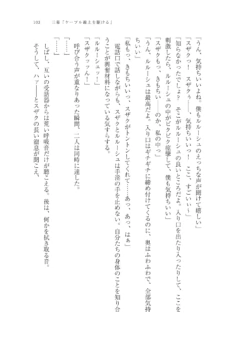 101　二章「テーブル権上主催ける」
「うん、気持ちいいよね。僕もルルーシュのえっちな声が聞けて嬉しい」
「スザクっ！　スザクぅ、気持ちいいっ！　ここ、すごいぃ……」
「知らなかったでしょ、そこがルルーシュの良いところだよ。入り口を出たり入ったりして、ここを
刺激したら、ルルーシュの中がビクビク痙攣して、僕も気持ちいい」
「スザクも、っ、きもちい……のか、私の中っ」
「うん、ルルーシュは最高だよ。入り口はギチギチに締め付けてくるのに、奥はふわふわで、全部気持
ちいい」
「っ、うん……。奥、スザクがトントンしてくれて……あっ、あっ、はぁ」
電話口で話しながら、スザクとルルーシュは手淫の手を止めない。自分たちの身体のことを知り合
うことが興奮材料になっている気すらする。
「ルルーシュっ……！」
「スザクッッん……！」
呼び合う声が重なりあった瞬間、二人は同時に達した。
しばし、互いの受話器からは荒い呼吸音だけが聴こえる。後は、何かを拭き取る音。
そうして、ハァ――とスザクの長い溜息が聞こえ、